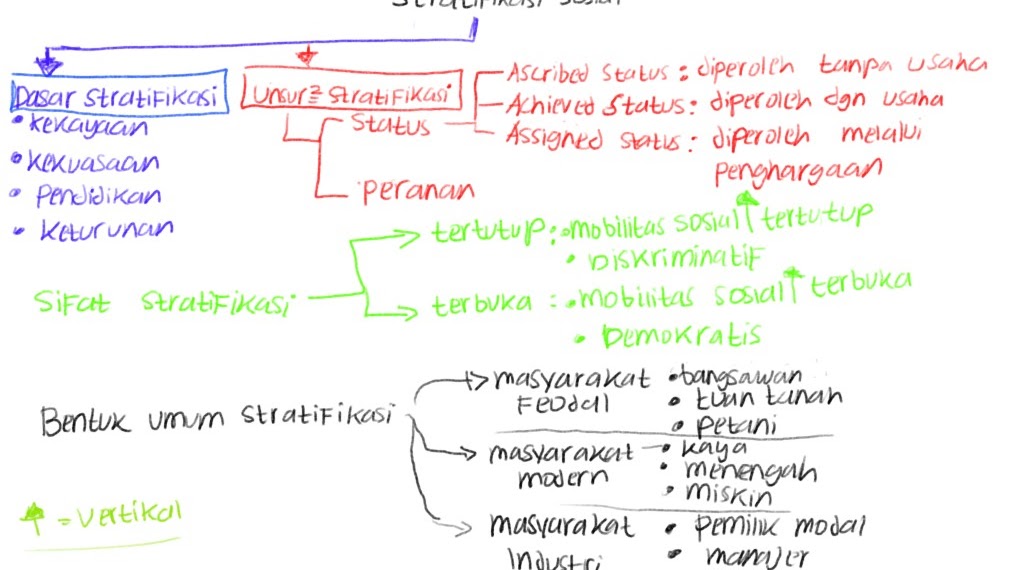 Stratifikasi sosial
Dasar stratifikasi
• kekayaan
• kekuasaan
• Pendidikan
• keturunan
Unsur2 stratifikasi
status
Ascribed status : diperoleh tanpa usaha
Achieved status : diperoleh dgn usaha
Assigned status : diperoleh melalui
penghargaan
peranan
Sifat stratifikasi
tertutup : • mobilitas sosial ↑ tertutup
• Diskriminatif
terbuka : • mobilitas sosial ↑ terbuka
• Demokratis
Bentuk umum stratifikasi
masyarakat
Feodal
• bangsawan
• tuan tanah
• petani
masyarakat
modern
• kaya
• menengah
• miskin
masyarakat
Industri
• pemilik modal
• manajer
↑ = vertikal